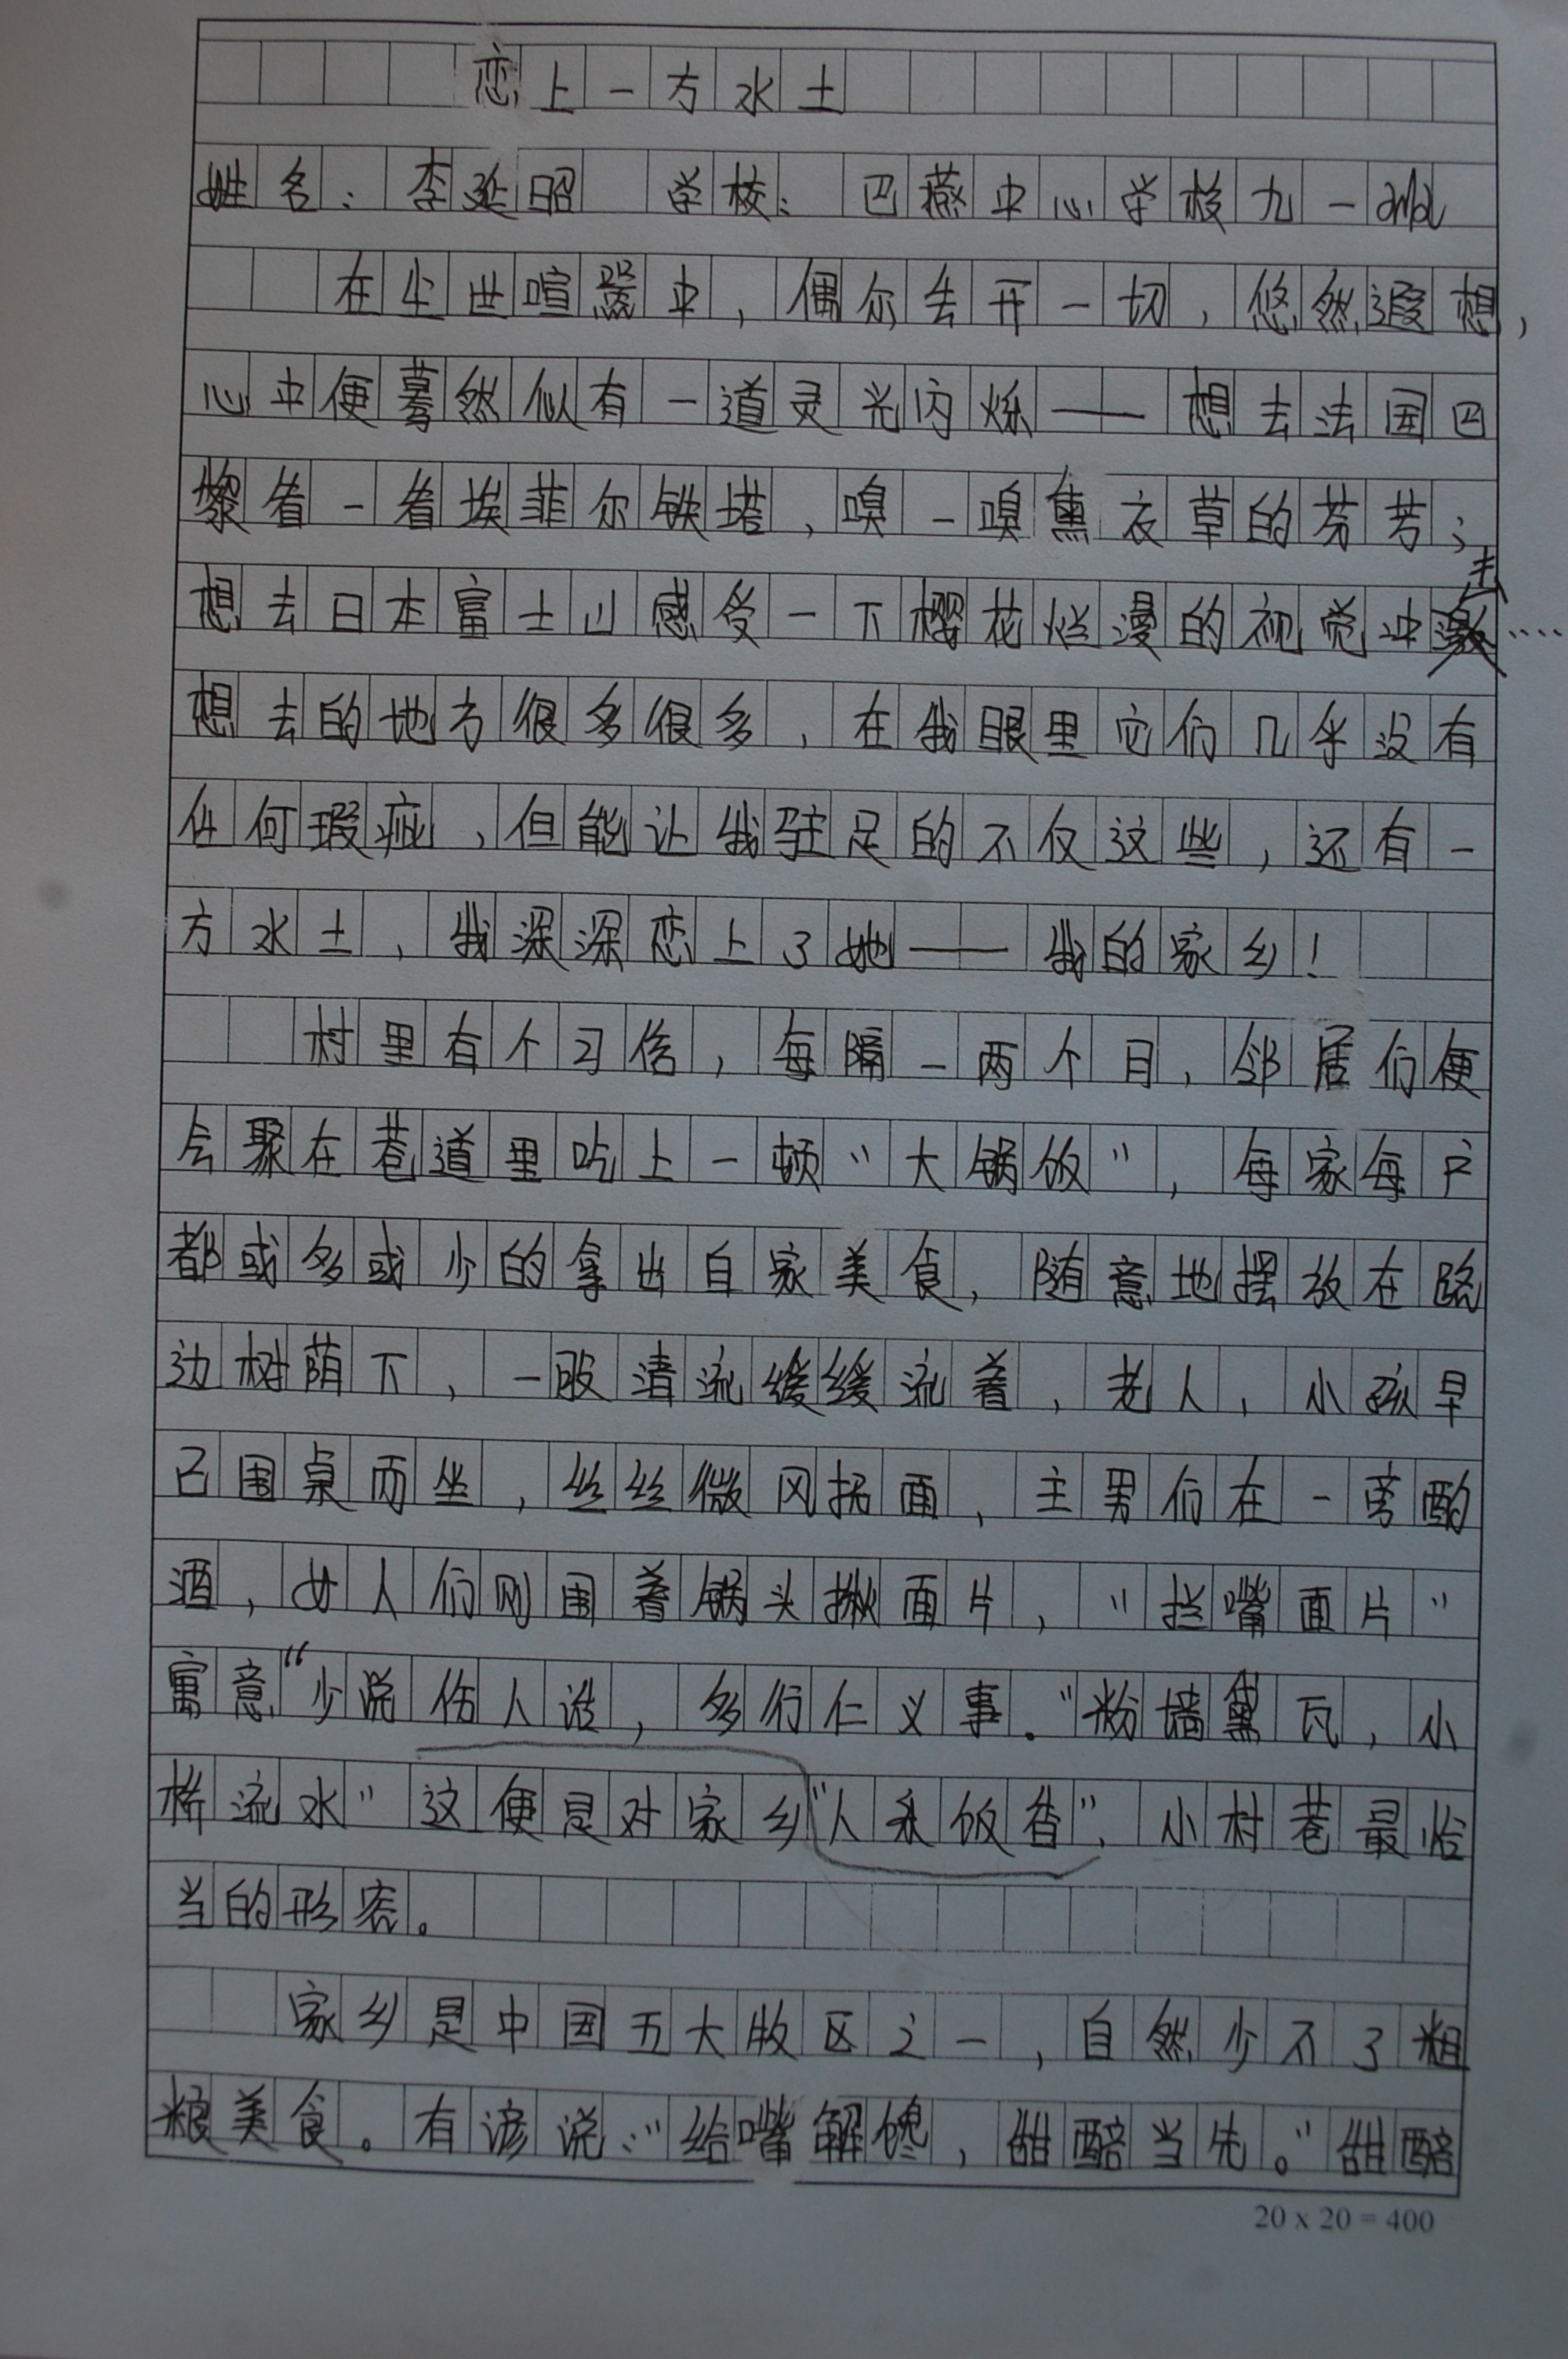 恋上一方水土
姓名：李延昭 学校：巴燕中心学校九一班
在尘世喧嚣中，偶尔去开一切，悠然遐想，
心中便蓦然似有一道灵光闪烁——想去法国巴
黎看一看埃菲尔铁塔，嗅一嗅薰衣草的芬芳；
想去日本富士山感受一下樱花烂漫的视觉冲击……
想去的地方很多很多，在我眼里它们几乎没有
任何瑕疵，但能让我驻足的不仅这些，还有一
方水土，我深深恋上了她——我的家乡！
村里有个习俗，每隔一两个月，邻居们便
会聚在巷道里吃上一顿“大锅饭”，每家每户
都或多或少的拿出自家美食，随意地摆放在路
边树荫下，一股清流缓缓流着，老人，小孩早
已围桌而坐，丝丝微风拂面，主男们在一旁酌
酒，女人们则围着锅头揪面片，“拦嘴面片”
寓意“少说伤人话，多行仁义事。”粉墙黛瓦，小
桥流水”这便是对家乡“人亲饭香”，小村巷最恰
当的形容。
家乡是中国五大牧区之一，自然少不了粗
粮美食。有谚说：“给嘴解馋，甜醅当先。”甜醅
20 x 20 = 400